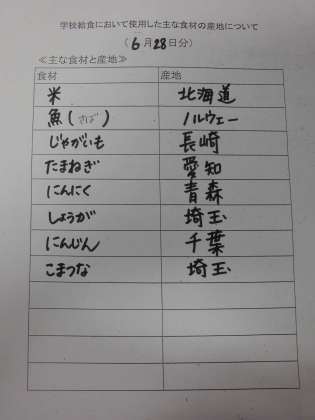 学校給食において使用した主な食材の産地について
(6月28日分)
≪主な食材と産地≫
食材 産地
米 北海道
魚(さば) ノルウェー
じゃがいも 長崎
たまねぎ 愛知
にんにく 青森
しょうが 埼玉
にんじん 千葉
こまつな 埼玉